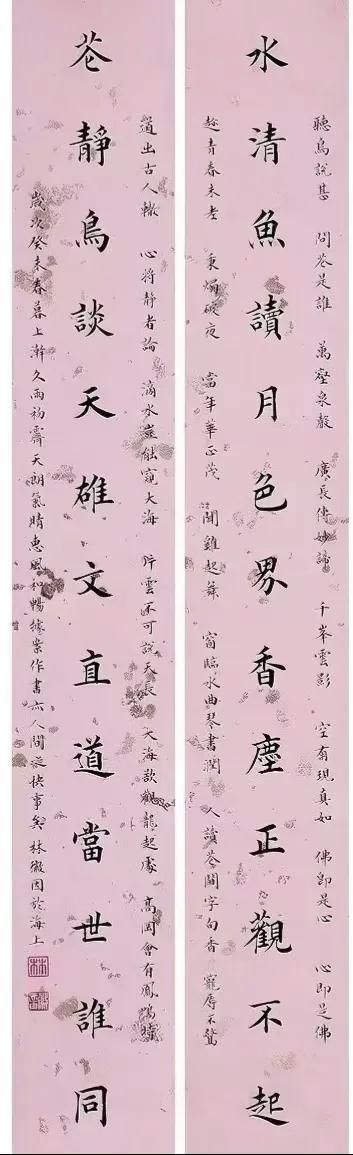 聽鳥說甚 問花是誰 萬壑泉聲 廣長傳妙諦 千峯雲影 空有現真如 佛即是心 心即是佛
水清魚讀月色界香塵正觀不起
趁青春未老 秉燭破夜 當年華正茂 聞雞起舞 窗臨水曲琴書潤 人讀花間字句香 寵辱不驚
道出古人轍 心將靜者論 滴水豈能窺大海 片雲不可說天長 大海欲觀龍起處 高岡會有鳳鳴
花靜鳥談天雄文直道當世誰同
歲次癸未春暮上澣久雨初霽天朗氣晴惠風和暢據案作書亦人間快事矣 林徽因於海上
林